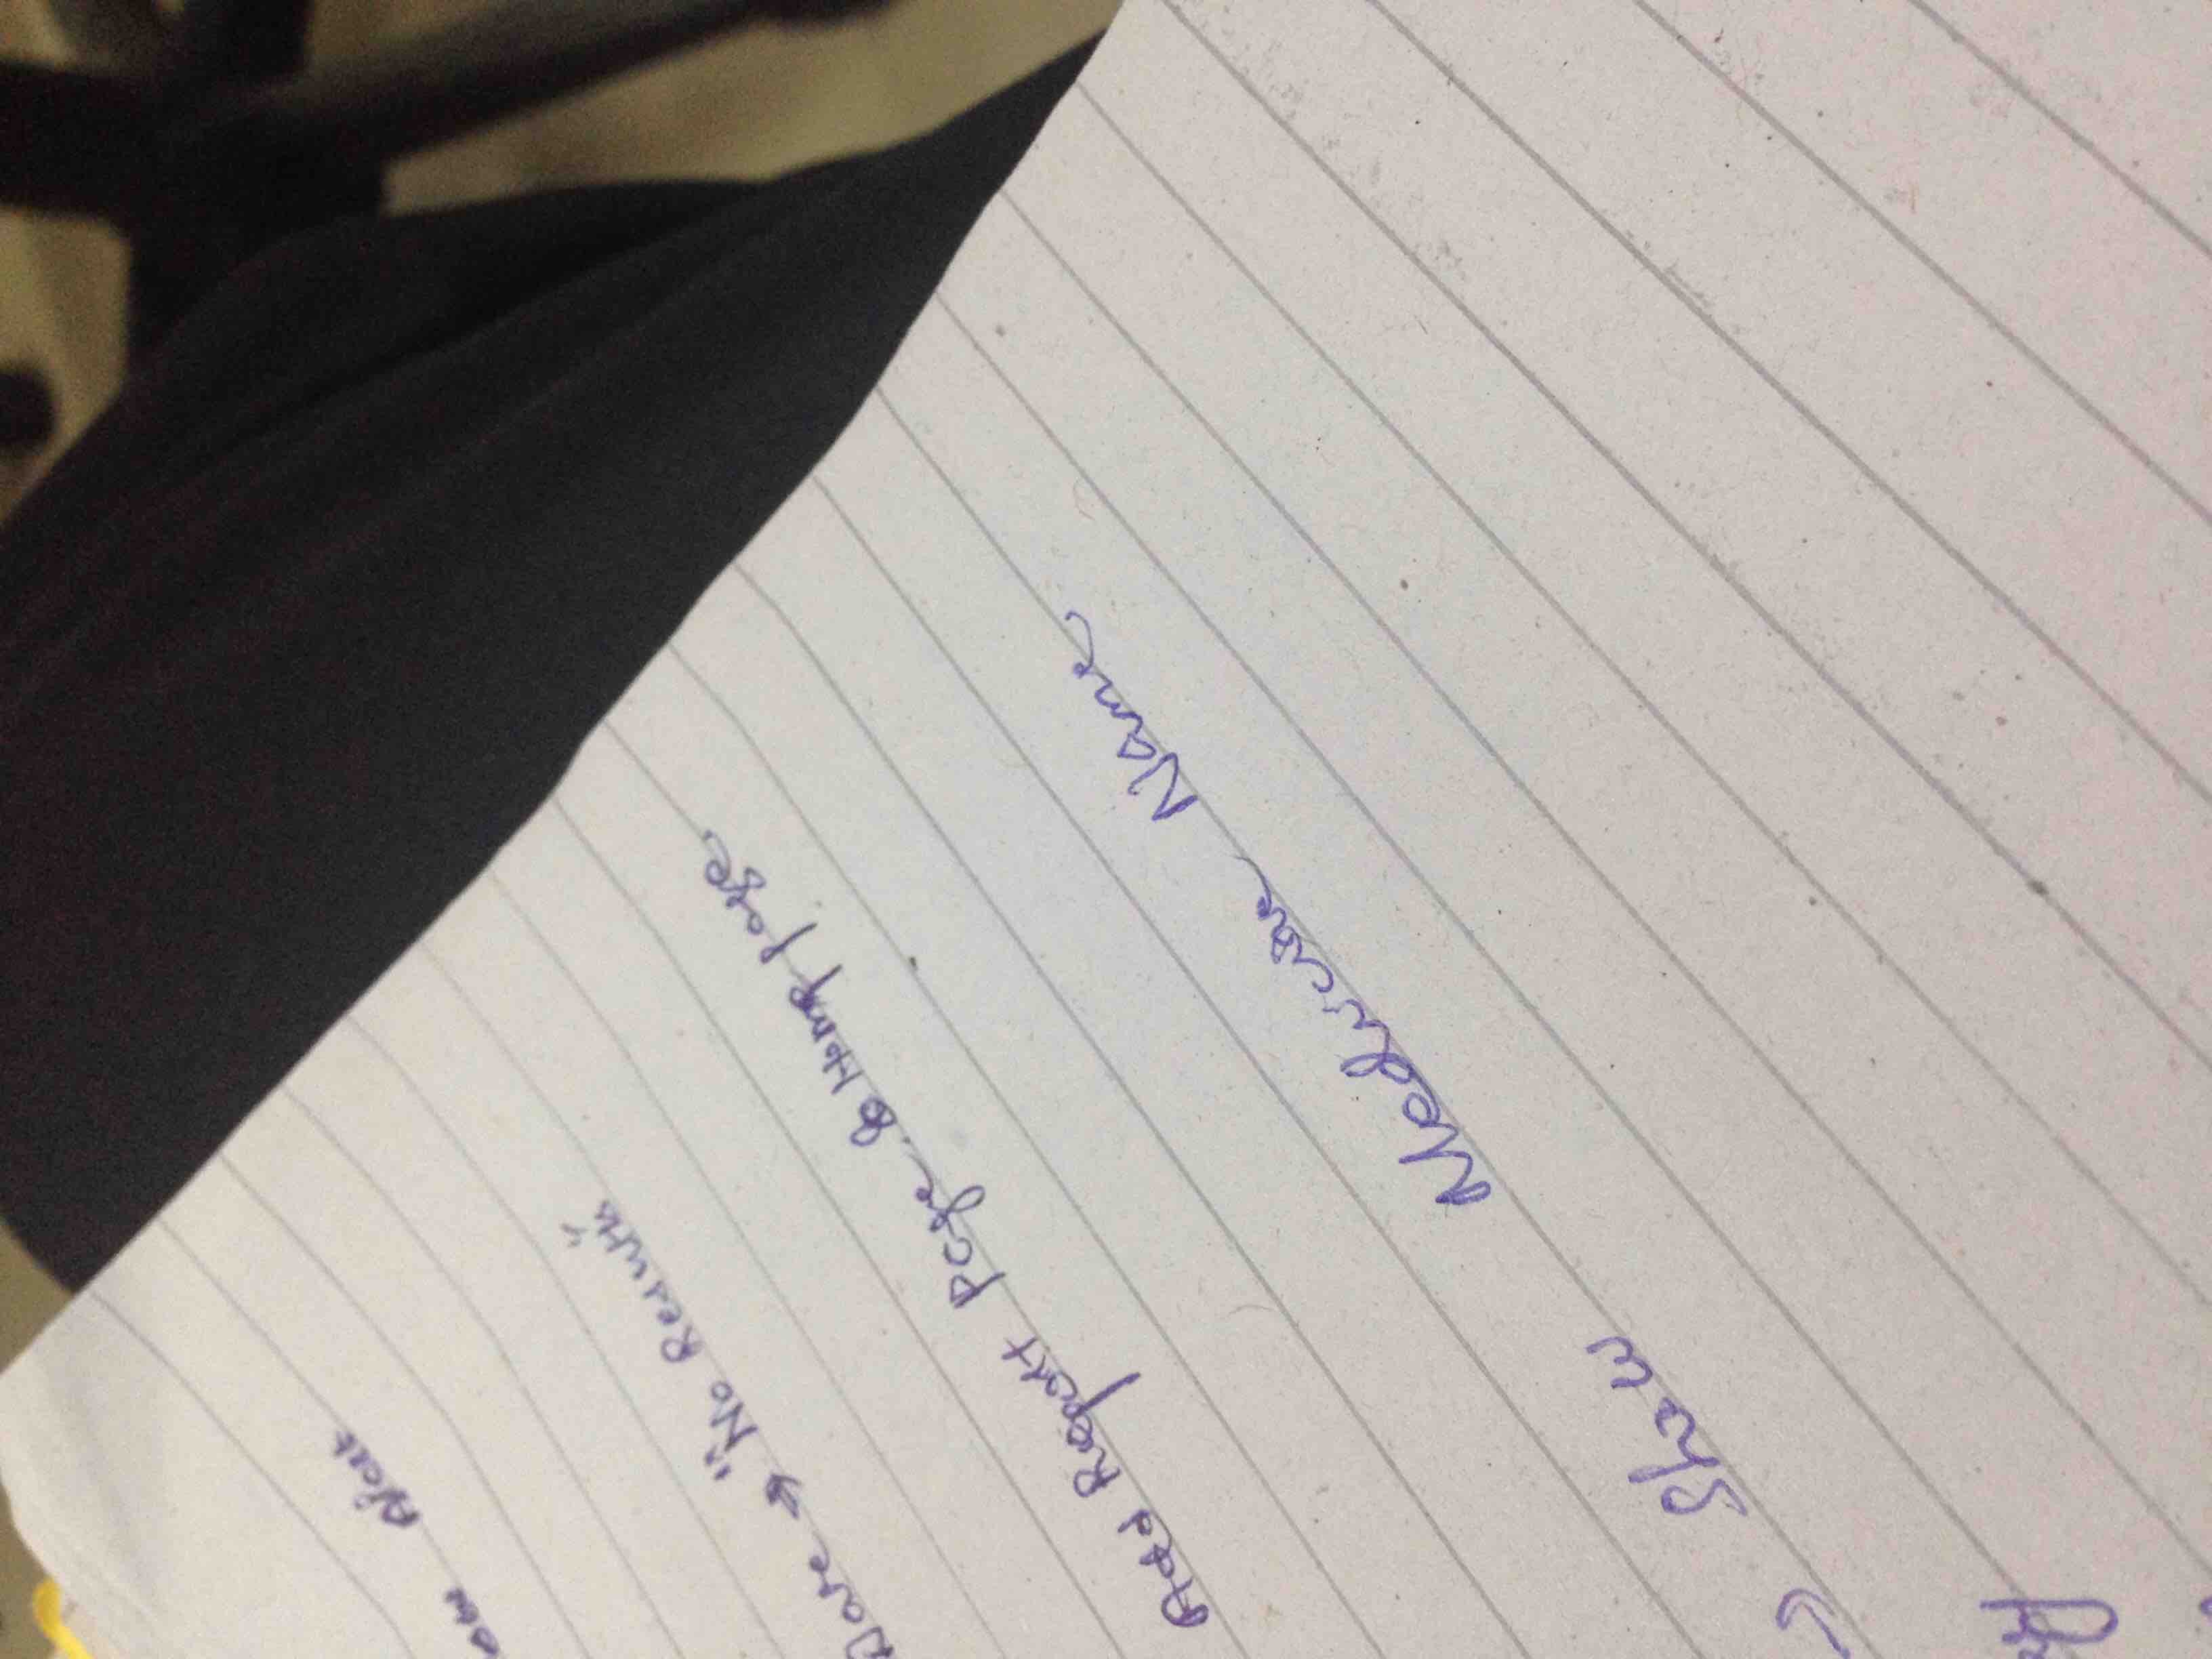 Alert
Date → "No Results"
Add Report Page & Home page
→ Show Medicine Name